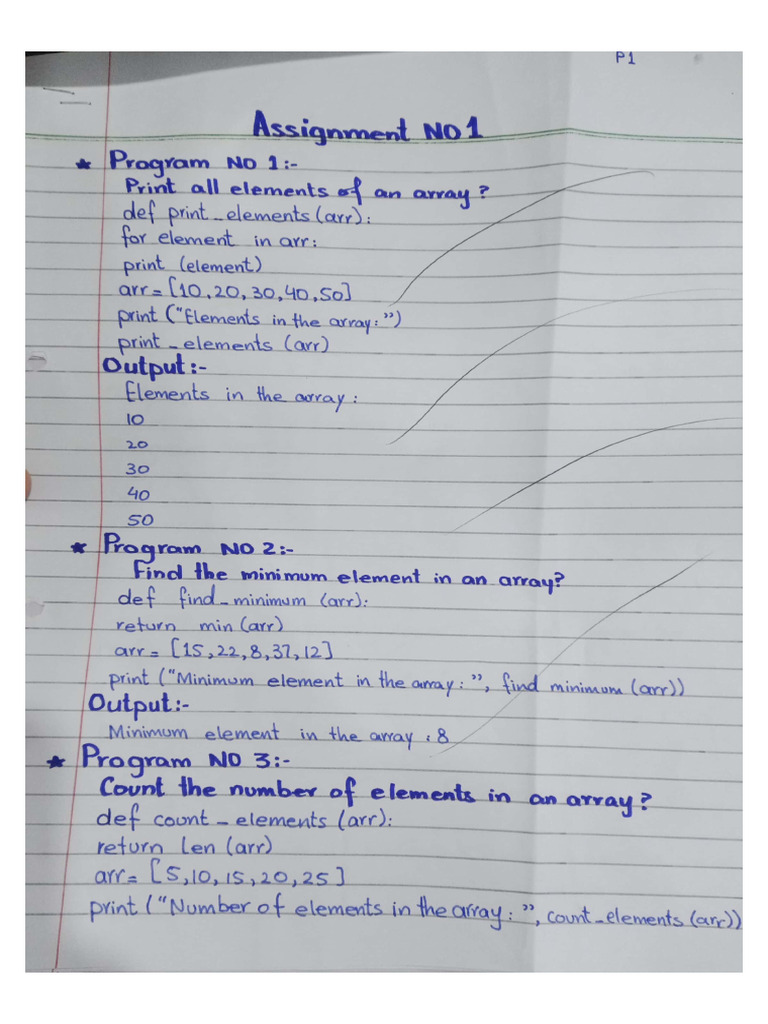 P1
Assignment NO 1
* Program NO 1:-
Print all elements of an array?
def print_elements (arr):
for element in arr:
print (element)
arr = [10, 20, 30, 40, 50]
print ("Elements in the array:")
print_elements (arr)
Output:-
Elements in the array:
10
20
30
40
50
* Program NO 2:-
Find the minimum element in an array?
def find_minimum (arr):
return min (arr)
arr = [15, 22, 8, 37, 12]
print ("Minimum element in the array:", find minimum (arr))
Output:-
Minimum element in the array : 8
* Program NO 3:-
Count the number of elements in an array?
def count_elements (arr):
return len (arr)
arr = [5, 10, 15, 20, 25]
print ("Number of elements in the array:", count_elements (arr))